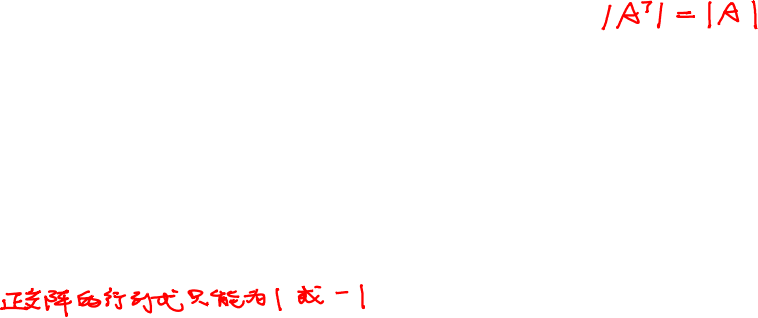 |Aᵀ| = |A|
正交阵的行列式只能为1或-1